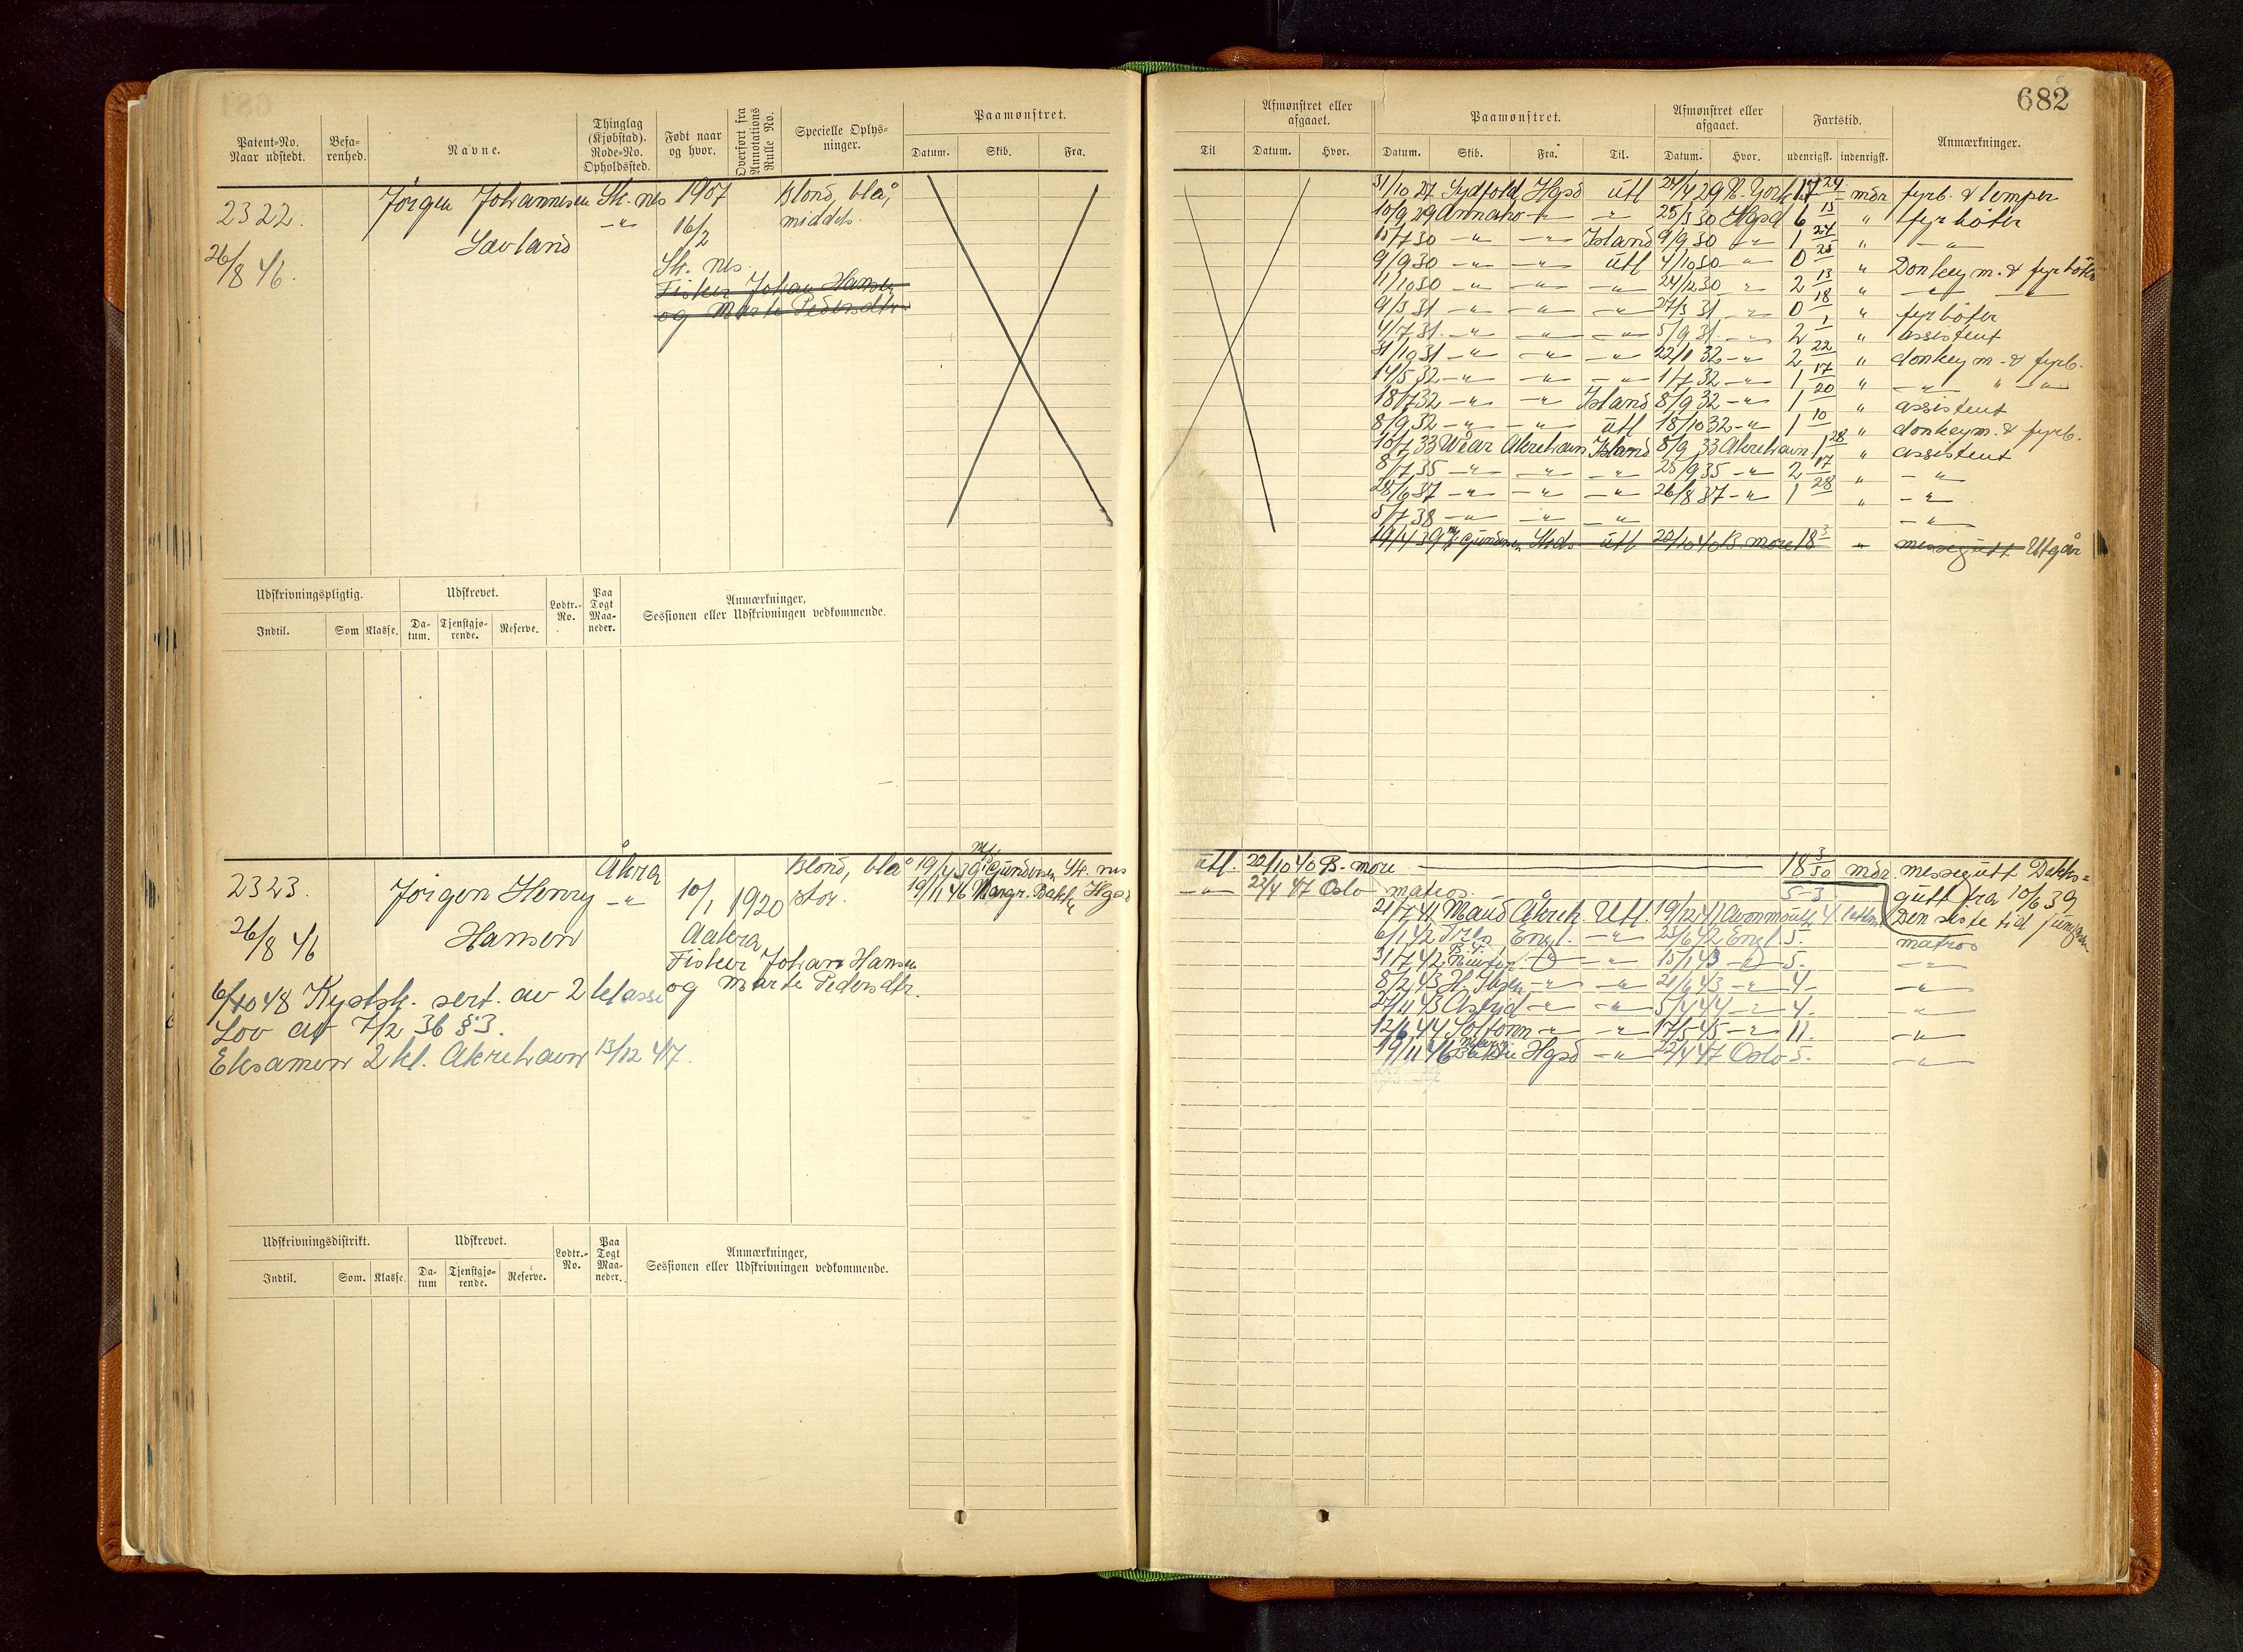 682
Patent-No. Naar udstedt.
Befa-renhed.
Navne.
Thinglag (Kjøbstad). Rode-No. Opholdssted.
Født naar og hvor.
Overført fra Annotations Rulle No.
Specielle Oplys-ninger.
Paamønstret.
Datum. Skib. Fra.
Til
Afmønstret eller afgaaet.
Datum. Hvor.
Paamønstret.
Datum. Skib. Fra. Til.
Afmønstret eller afgaaet.
Datum. Hvor.
Fartstid.
udenrigsk. indenrigsk.
Anmærkninger.
2322.
26/8 46.
Jørgen Johannesen
Sævland
Sk. nes
-"-
1907
16/2
Sk. nes
Fisker Johan Hansen
og Marte Pedersdtr.
Blond, blå,
middels
31/10 27 Sydfold Hgsd utl 24/4 29 N. York 17 24 mdr fyrb. & lemper
10/9 29 Annaho -"- " 25/3 30 Hgsd 6 15 " fyrbøter
15/7 30 -"- -"- Island 9/9 30 -"- 1 24 " -"-
9/9 30 -"- -"- utl 4/10 30 -"- 0 25 " Donkeym. & fyrbøter
11/10 30 -"- -"- -"- 24/12 30 -"- 2 13 " -"- -"-
9/3 31 -"- -"- -"- 27/3 31 -"- 0 18 " fyrbøter
4/7 31 -"- -"- -"- 5/9 31 -"- 2 1 " assistent
31/10 31 -"- -"- -"- 22/1 32 -"- 2 22 " donkeym. & fyrb.
14/5 32 -"- -"- -"- 1/7 32 -"- 1 17 " -"- " -"-
18/7 32 -"- -"- Island 8/9 32 -"- 1 20 " assistent
8/9 32 -"- -"- utl 18/10 32 -"- 1 10 " donkeym. & fyrb.
10/7 33 Wåar Akrehavn Island 8/9 33 Akrehavn 1 28 " assistent
8/7 35 -"- -"- -"- 25/9 35 -"- 2 17 " -"-
28/6 37 -"- -"- -"- 26/8 37 -"- 1 28 " -"-
5/7 38 -"- -"- -"- -"-
19/4 39 Gundersen Sknds utl 22/10 40 B. more 18 3 " messegutt Utgår
Udskrivningspligtig.
Indtil. Som Klasse.
Udskrevet.
Da-tum. Tjenstgjø-rende. Reserve.
Lodtr.-No.
Paa Togt Maa-neder.
Anmærkninger,
Sessionen eller Udskrivningen vedkommende.
2323.
26/8 46
Jørgen Henry
Hansen
Åkra
-"-
10/1 1920
Aakra
Fisker Johan Hansen
og Marte Pedersdtr.
Blond, blå
stor.
19/4 39 Gundersen Sk. nes utl. 22/10 40 B. more 18 3/30 mdr messegutt Dekks=
19/11 46 Margr. Bakke Hgsd -"- 22/4 47 Oslo matros. 5-3 gutt fra 10/6 39
21/7 41 Maud Akreh. Utl. 19/12 41 Avonmouth 4 Den siste tid jungmann
6/1 42 Engl. -"- 25/6 42 Engl. 5. matros
31/7 42 -"- -"- 15/1 43 -"- 5. -"-
8/2 43 H. Ibsen -"- -"- 21/6 43 -"- 4. -"-
24/11 43 Astrid -"- -"- 5/4 44 -"- 4. -"-
12/6 44 -"- -"- 17/5 45 -"- 11. -"-
19/11 46 Marg. Bakke Hgsd -"- 22/4 47 Oslo 5. -"-
6/10 48 Kystsk. sert. av 2 klasse
Lov av 7/2 36 § 3.
Eksamen 2 kl. Akrehavn 13/12 47.
Udskrivningsdistrikt.
Indtil. Som. Klasse.
Udskrevet.
Da-tum Tjenstgjø-rende. Reserve.
Lodtr.-No.
Paa Togt Maa-neder.
Anmærkninger,
Sessionen eller Udskrivningen vedkommende.